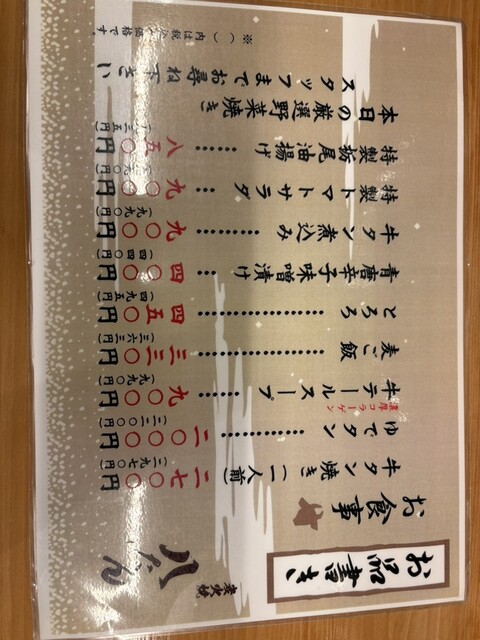 お品書き
お食事
牛タン焼き(一人前) 二七〇〇円
(二九七〇円)
ゆでタン………… 二〇〇〇円
(二二〇〇円)
濃厚コラーゲン
牛テールスープ…… 九〇〇円
(九九〇円)
麦ご飯………… 三三〇円
(三六三円)
とろろ………… 四五〇円
(四九五円)
青唐辛子味噌漬け…… 四〇〇円
(四四〇円)
牛タン煮込み……… 九〇〇円
(九九〇円)
特製トマトサラダ… 九〇〇円
(九九〇円)
特製栃尾油揚げ…… 八五〇円
(九三五円)
本日の厳選野菜焼き
スタッフまでお尋ね下さい
※( )内は税込み価格です。
炭火焼